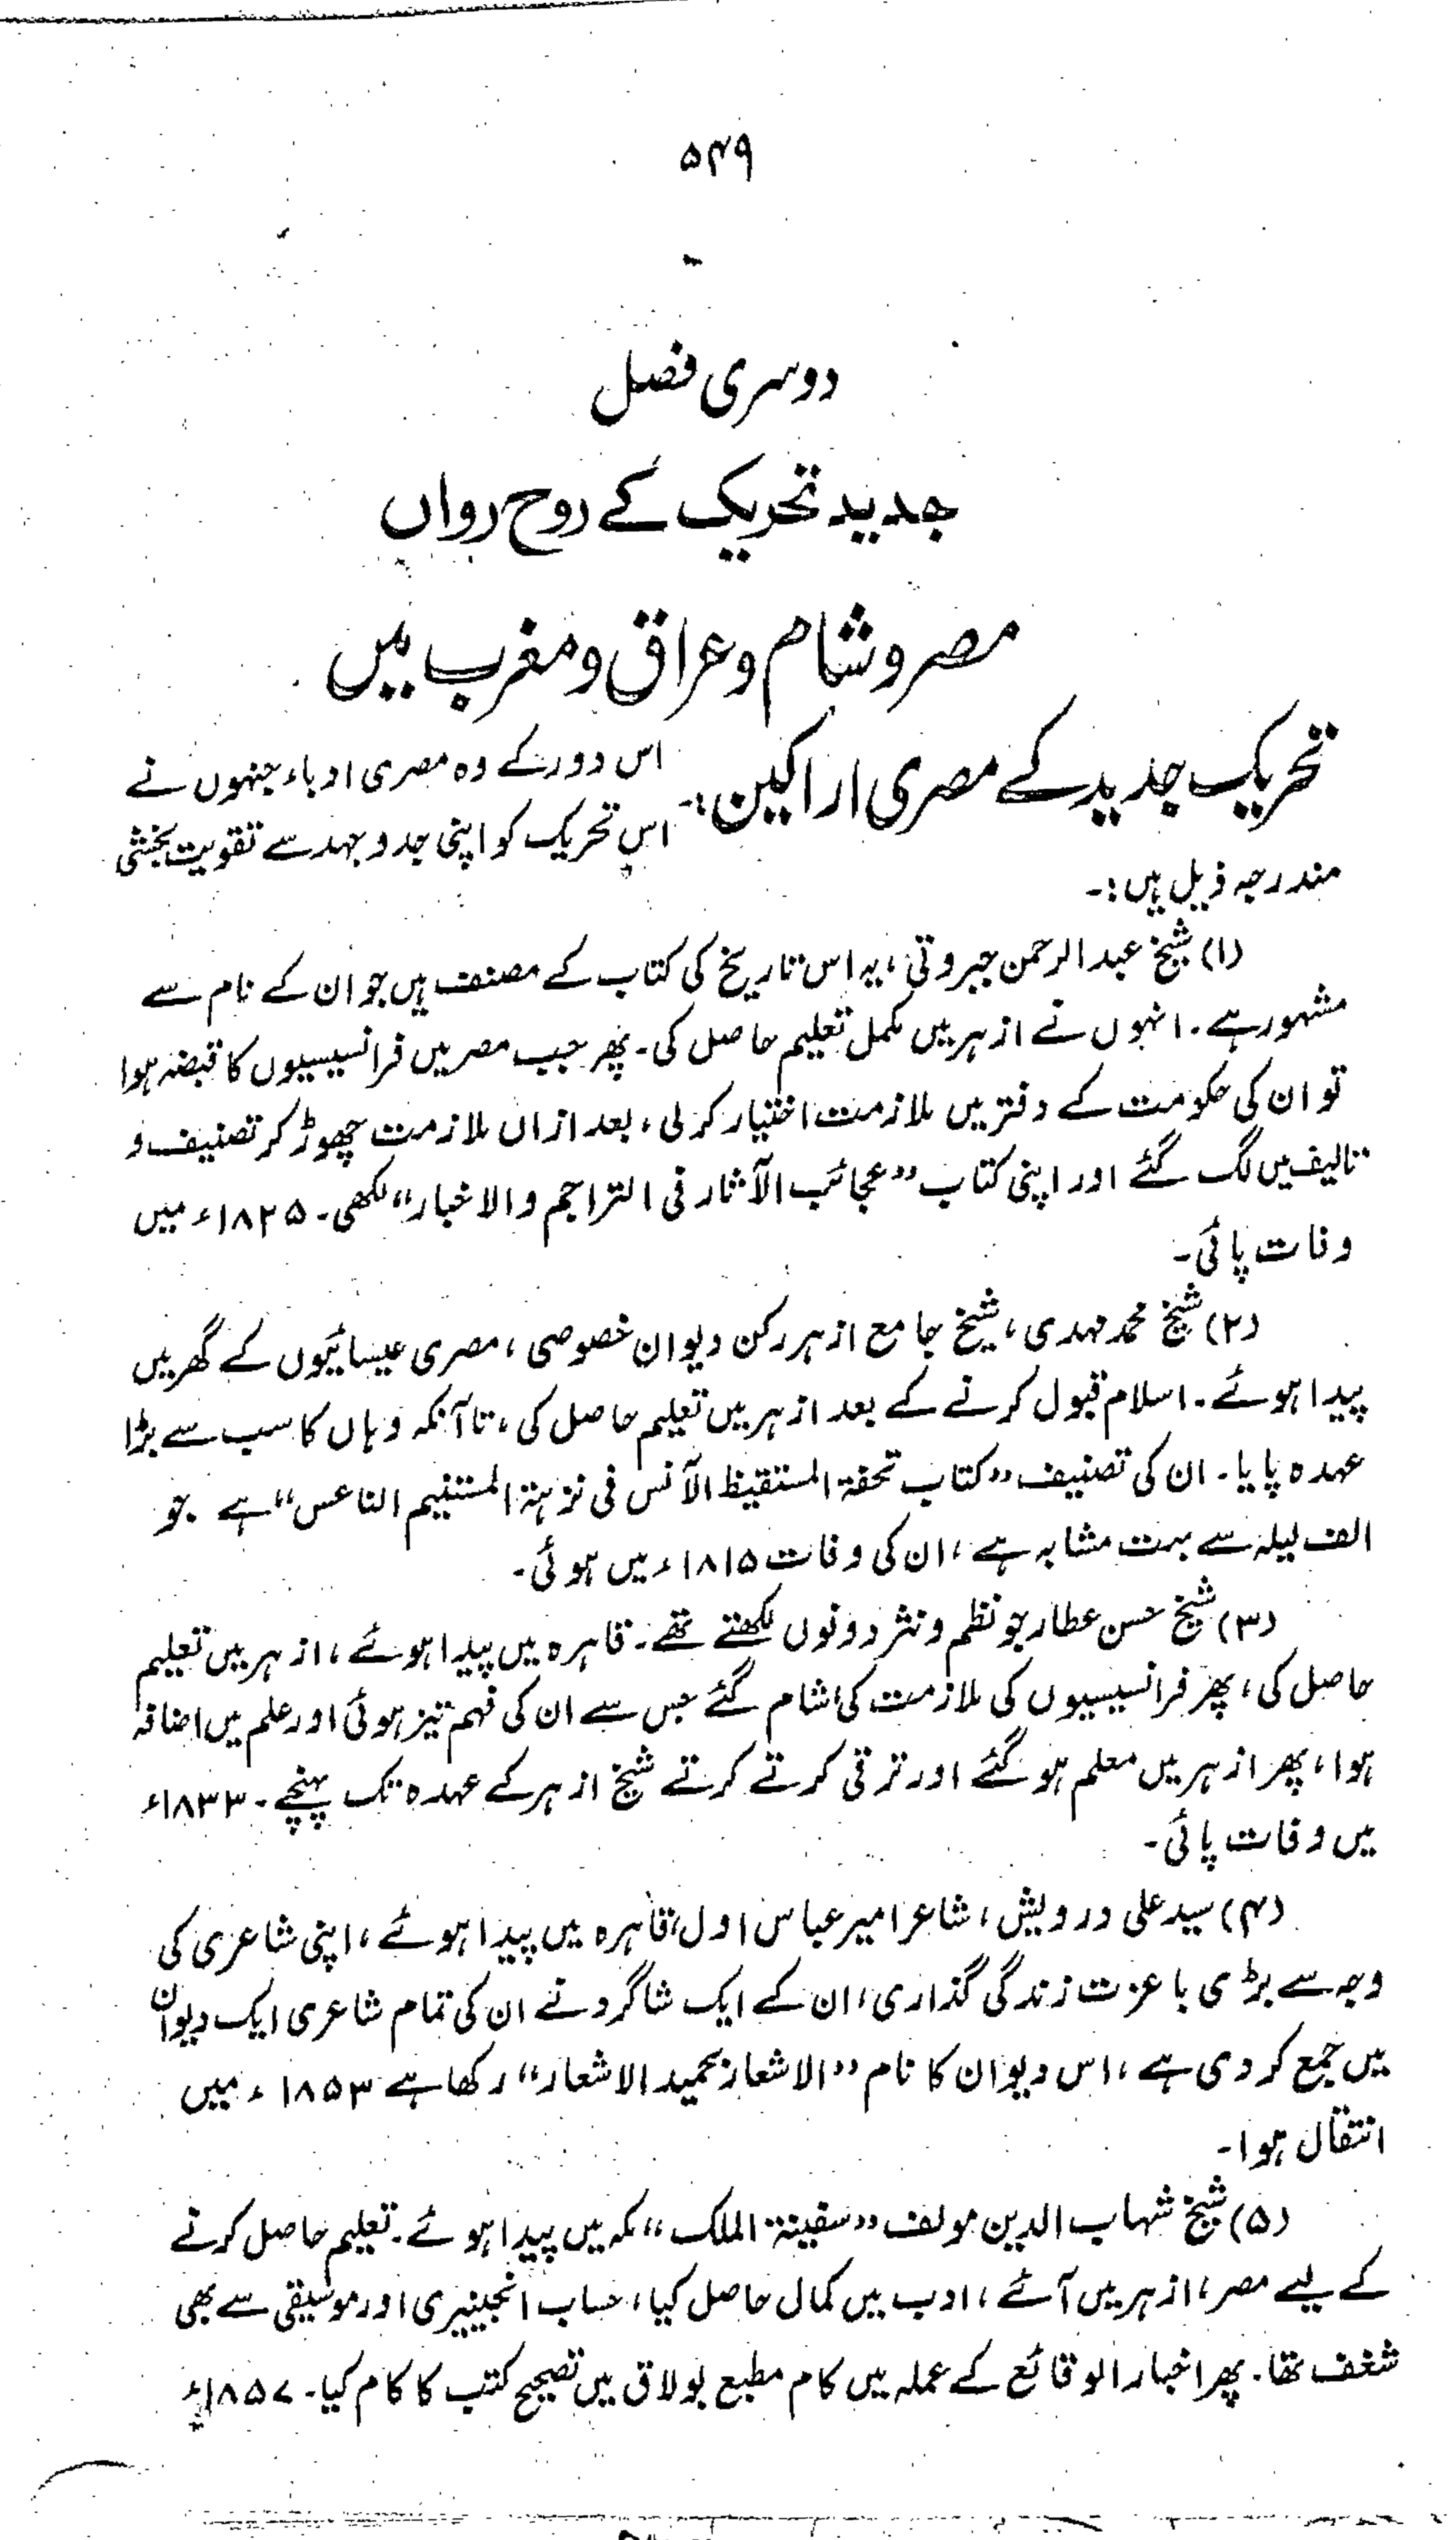 ۵۴۹
دوسری فصل
جدید تحریک کے روح رواں
مصر و شام و عراق و مغرب میں
تحریک جدید کے مصری اراکین:-
اس دور کے وہ مصری ادباء جنہوں نے
اس تحریک کو اپنی جد و جہد سے تقویت بخشی
مندرجہ ذیل ہیں:-
(۱) شیخ عبدالرحمن جبروتی، یہ اس تاریخ کی کتاب کے مصنف ہیں جو ان کے نام سے
مشہور ہے۔ انہوں نے ازہر میں مکمل تعلیم حاصل کی۔ پھر جب مصر میں فرانسیسیوں کا قبضہ ہوا
تو ان کی حکومت کے دفتر میں ملازمت اختیار کر لی، بعد ازاں ملازمت چھوڑ کر تصنیف و
تالیف میں لگ گئے اور اپنی کتاب "عجائب الآثار فی التراجم والاخبار" لکھی۔ ۱۸۲۵ء میں
وفات پائی۔
(۲) شیخ محمد مہدی، شیخ جامع ازہر رکن دیوان خصوصی، مصری عیسائیوں کے گھر میں
پیدا ہوئے۔ اسلام قبول کرنے کے بعد ازہر میں تعلیم حاصل کی، تا آنکہ وہاں کا سب سے بڑا
عہدہ پایا۔ ان کی تصنیف "کتاب تحفۃ المستقیظ الآنس فی نزہۃ المستنیم الناعس" ہے۔ جو
الف لیلہ سے بہت مشابہ ہے، ان کی وفات ۱۸۱۵ء میں ہوئی۔
(۳) شیخ حسن عطار جو نظم و نثر دونوں لکھتے تھے۔ قاہرہ میں پیدا ہوئے، ازہر میں تعلیم
حاصل کی، پھر فرانسیسیوں کی ملازمت کی، شام گئے جس سے ان کی فہم تیز ہوئی اور علم میں اضافہ
ہوا، پھر ازہر میں معلم ہو گئے اور ترقی کرتے کرتے شیخ ازہر کے عہدہ تک پہنچے۔ ۱۸۳۳ء
میں وفات پائی۔
(۴) سید علی درویش، شاعر امیر عباس اول، قاہرہ میں پیدا ہوئے، اپنی شاعری کی
وجہ سے بڑی با عزت زندگی گذاری، ان کے ایک شاگرد نے ان کی تمام شاعری ایک دیوان
میں جمع کر دی ہے، اس دیوان کا نام "الاشعار بحمید الاشعار" رکھا ہے ۱۸۵۳ء میں
انتقال ہوا۔
(۵) شیخ شہاب الدین مولف "سفینۃ الملک" مکہ میں پیدا ہوئے۔ تعلیم حاصل کرنے
کے لیے مصر، ازہر میں آئے، ادب میں کمال حاصل کیا، حساب انجینیری اور موسیقی سے بھی
شغف تھا۔ پھر اخبار الوقائع کے عملہ میں کام مطبع بولاق میں تصحیح کتب کا کام کیا۔ ۱۸۵۷ء